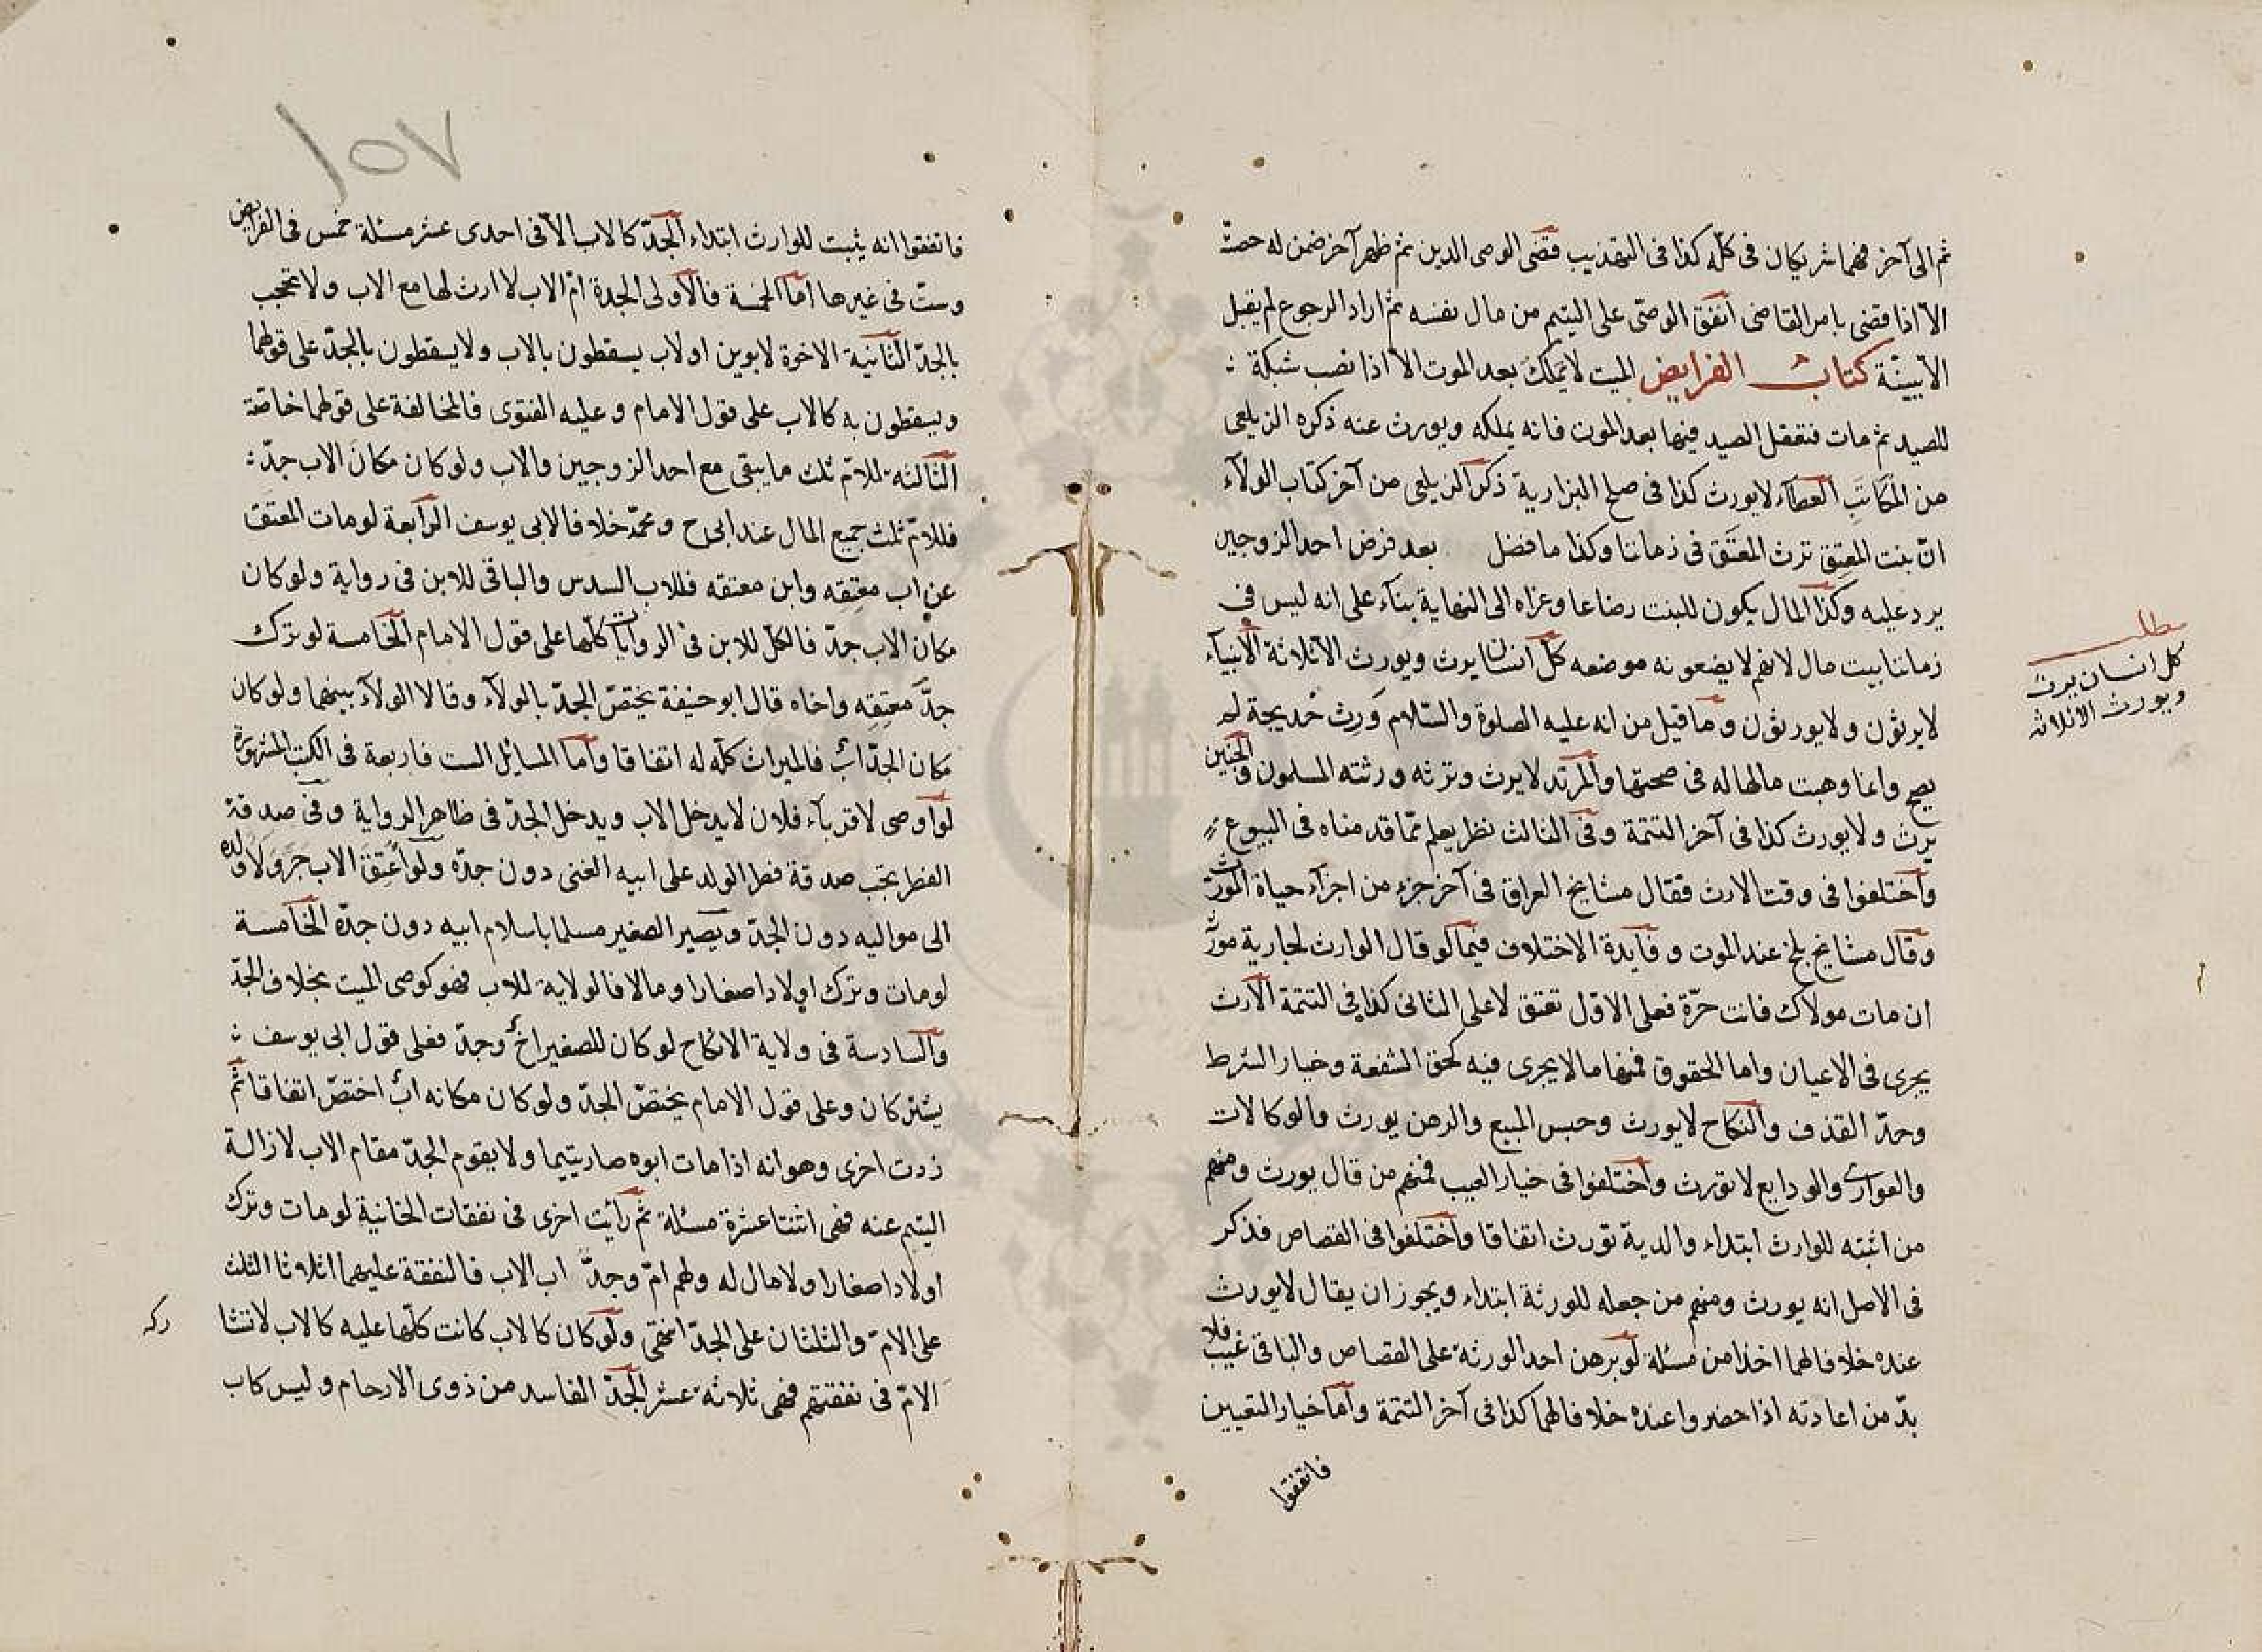 ثم الى آخر فهما شريكان فى كلّه كذا فى التهذيب قضى الوصى الدين ثم ظهر آخر ضمن له حصته
الا اذا قضى بامر القاضى انفق الوصى على اليتيم من مال نفسه ثم اراد الرجوع لم يقبل
الا ببيّنة كتاب الفرايض الميت لا يملك بعد الموت الا اذا نصب شبكة
للصيد ثم مات فتعقل الصيد فيها بعد الموت فانه يملكه ويورث عنه ذكره الزيلعى
من المكاتَب العطآء لا يورث كذا فى صلح البزازية ذكر الزيلعى من آخر كتاب الولآء
انّ بنت المعتِق ترث المعتَق فى زماننا وكذا ما فضل بعد فرض احد الزوجين
يرد عليه وكذا المال يكون للبنت رضاعا وعزاه الى النهاية بنآء على انه ليس فى
زماننا بيت مال لانهم لا يضعونه موضعه كلّ انسان يرث ويورث الا ثلاثة الانبيآء
لا يرثون ولا يورثون وما قيل من انه عليه الصلوة والسّلام وَرِث خديجة لم
يصح وانما وهبت مالها له فى صحتها والمرتد لا يرث وترثه ورثته المسلمون والجنين
يرث ولا يورث كذا فى آخر التتمة وفى الثالث نظر يعلم ممّا قدمناه فى البيوع
واختلفوا فى وقت الارث فقال مشايخ العراق فى آخر جزء من اجزآء حياة المورّث
وقال مشايخ بلخ عند الموت وفايدة الاختلاف فيما لو قال الوارث لجارية مورّثه
ان مات مولاك فانت حرّة فعلى الاوّل تعتق لا على الثانى كذا فى التتمة الارث
يجرى فى الاعيان واما الحقوق فمنها ما لا يجرى فيه كحق الشفعة وخيار الشرط
وحدّ القذف والنكاح لا يورث وحبس المبيع والرهن يورث والوكالات
والعوارى والودايع لا تورث واختلفوا فى خيار العيب فمنهم من قال يورث ومنهم
من اثبته للوارث ابتداء والدية تورث اتفاقا واختلفوا فى القصاص فذكر
فى الاصل انه يورث ومنهم من جعله للورثة ابتداء ويجوز ان يقال لا يورث
عنده خلافا لهما اخذا من مسئلة لو برهن احد الورثة على القصاص والباقى غيب فلا
بدّ من اعادته اذا حضروا عنده خلافا لهما كذا فى آخر التتمة واما خيار التعيين
فاتفقوا
مطلب
كل انسان يرث
ويورث الا ثلاثه
١٥٧
فاتفقوا انه يثبت للوارث ابتداء الجدّ كالاب الا فى احدى عشر مسئلة خمس فى الفرايض
وستّ فى غيرها اما الخمسة فالاولى الجدة امّ الاب لا ارث لها مع الاب ولا تحجب
بالجدّ الثانية الاخوة لابوين او لاب يسقطون بالاب ولا يسقطون بالجدّ على قولهما
ويسقطون به كالاب على قول الامام وعليه الفتوى فالمخالفة على قولهما خاصّة
الثالثة للامّ ثلث ما يبقى مع احد الزوجين والاب ولو كان مكان الاب جدّ
فللامّ ثلث جميع المال عند ابى ح ومحمّد خلافا لابى يوسف الرابعة لو مات المعتق
عن اب معتقه وابن معتقه فللاب السدس والباقى للابن فى رواية ولو كان
مكان الاب جدّ فالكلّ للابن فى الروايات كلّها على قول الامام الخامسة لو ترك
جدّ معتِقه واخاه قال ابو حنيفة يختصّ الجدّ بالولآء وقالا الولآء بينهما ولو كان
مكان الجدّ ابٌ فالميراث كلّه له اتفاقا واما المسايل الست فاربعة فى الكتب المشهورة
لو اوصى لاقربآء فلان لا يدخل الاب ويدخل الجدّ فى ظاهر الرواية وفى صدقة
الفطر تجب صدقة فطر الولد على ابيه الغنى دون جدّه ولو اعتق الاب جرّ ولاء ولده
الى مواليه دون الجدّ ويصير الصغير مسلما باسلام ابيه دون جدّه الخامسة
لو مات وترك اولادا صغارا ومالا فالولاية للاب فهو كوصى الميت بخلاف الجدّ
والسادسة فى ولاية الانكاح لو كان للصغير اخٌ وجدّ فعلى قول ابى يوسف
يشتركان وعلى قول الامام يختصّ الجدّ ولو كان مكانه ابٌ اختصّ اتفاقا ثم
زدت اخرى وهو انه اذا مات ابوه صار يتيما ولا يقوم الجدّ مقام الاب لازالة
اليتيم عنه فهى اثنتا عشرة مسئلة ثم رأيت اخرى فى نفقات الخانية لو مات وترك
اولادا صغارا ولا مال له ولهم امّ وجدّ اب الاب فالنفقة عليهما اثلاثا الثلث
على الامّ والثلثان على الجدّ انتهى ولو كان كالاب كانت كلّها عليه كالاب لا تشا
ركه
الامّ فى نفقتهم فهى ثلاثة عشر الجدّ الفاسد من ذوى الارحام وليس كاب